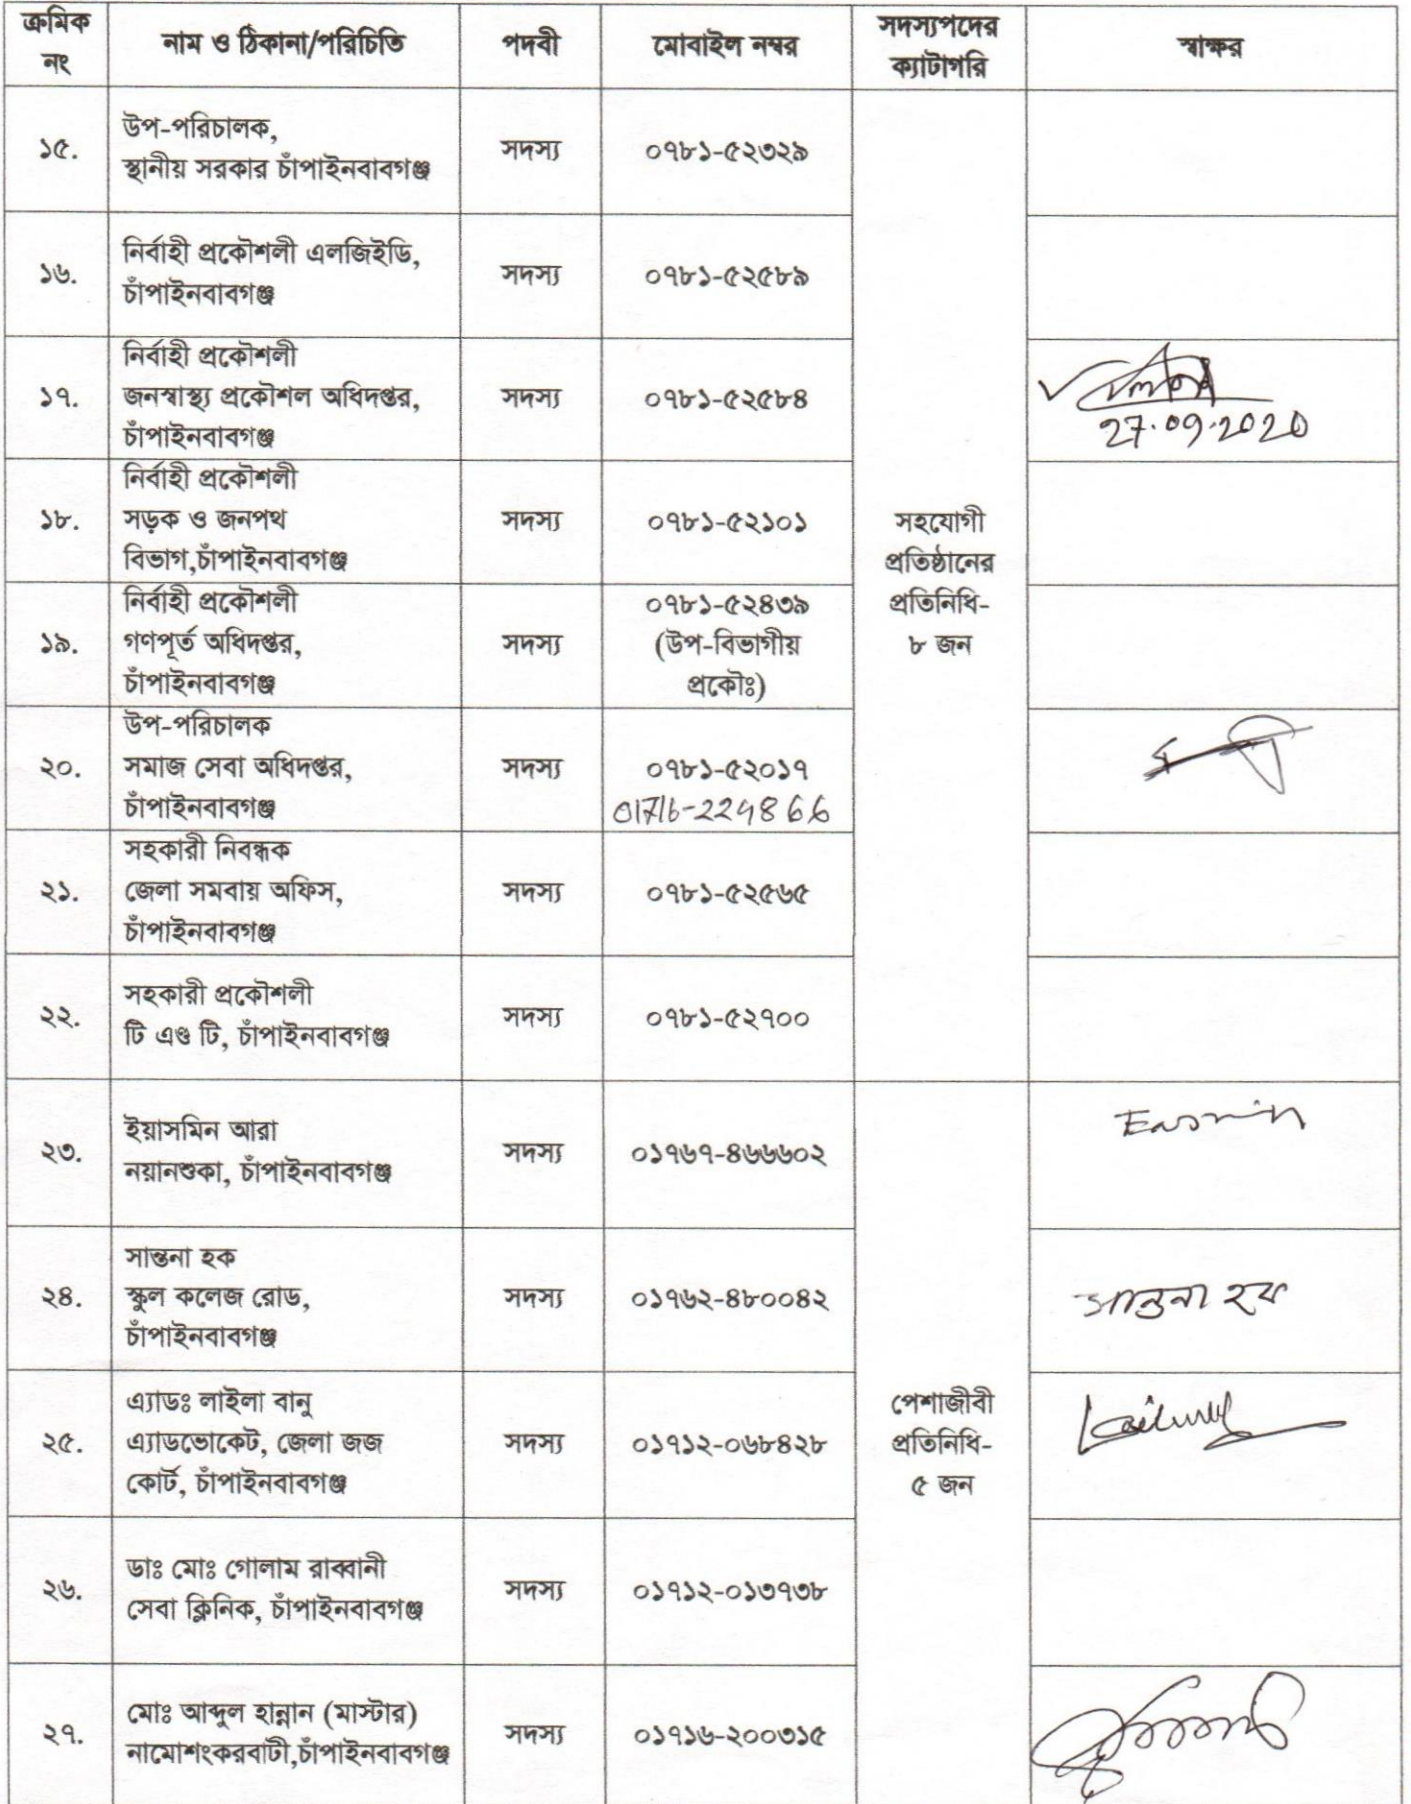 ক্রমিক নং	নাম ও ঠিকানা/পরিচিতি	পদবী	মোবাইল নম্বর	সদস্যপদের ক্যাটাগরি	স্বাক্ষর
১৫.
উপ-পরিচালক,
স্থানীয় সরকার চাঁপাইনবাবগঞ্জ
সদস্য
০৭৮১-৫২৩২৯
১৬.
নির্বাহী প্রকৌশলী এলজিইডি,
চাঁপাইনবাবগঞ্জ
সদস্য
০৭৮১-৫২৫৮৯
১৭.
নির্বাহী প্রকৌশলী
জনস্বাস্থ্য প্রকৌশল অধিদপ্তর,
চাঁপাইনবাবগঞ্জ
সদস্য
০৭৮১-৫২৫৮৪
27.09.2020
১৮.
নির্বাহী প্রকৌশলী
সড়ক ও জনপথ
বিভাগ,চাঁপাইনবাবগঞ্জ
সদস্য
০৭৮১-৫২১০১
সহযোগী
প্রতিষ্ঠানের
প্রতিনিধি-
৮ জন
১৯.
নির্বাহী প্রকৌশলী
গণপূর্ত অধিদপ্তর,
চাঁপাইনবাবগঞ্জ
সদস্য
০৭৮১-৫২৪৩৯
(উপ-বিভাগীয়
প্রকৌঃ)
২০.
উপ-পরিচালক
সমাজ সেবা অধিদপ্তর,
চাঁপাইনবাবগঞ্জ
সদস্য
০৭৮১-৫২০১৭
২১.
সহকারী নিবন্ধক
জেলা সমবায় অফিস,
চাঁপাইনবাবগঞ্জ
সদস্য
০৭৮১-৫২৫৬৫
২২.
সহকারী প্রকৌশলী
টি এণ্ড টি, চাঁপাইনবাবগঞ্জ
সদস্য
০৭৮১-৫২৭০০
২৩.
ইয়াসমিন আরা
নয়ানশুকা, চাঁপাইনবাবগঞ্জ
সদস্য
০১৭৬৭-৪৬৬৬০২
২৪.
সান্তনা হক
স্কুল কলেজ রোড,
চাঁপাইনবাবগঞ্জ
সদস্য
০১৭৬২-৪৮০০৪২
সান্তনা হক
২৫.
এ্যাডঃ লাইলা বানু
এ্যাডভোকেট, জেলা জজ
কোর্ট, চাঁপাইনবাবগঞ্জ
সদস্য
০১৭১২-০৬৮৪২৮
পেশাজীবী
প্রতিনিধি-
৫ জন
২৬.
ডাঃ মোঃ গোলাম রাব্বানী
সেবা ক্লিনিক, চাঁপাইনবাবগঞ্জ
সদস্য
০১৭১২-০১৩৭৩৮
২৭.
মোঃ আব্দুল হান্নান (মাস্টার)
নামোশংকরবাটী,চাঁপাইনবাবগঞ্জ
সদস্য
০১৭১৬-২০০৩১৫